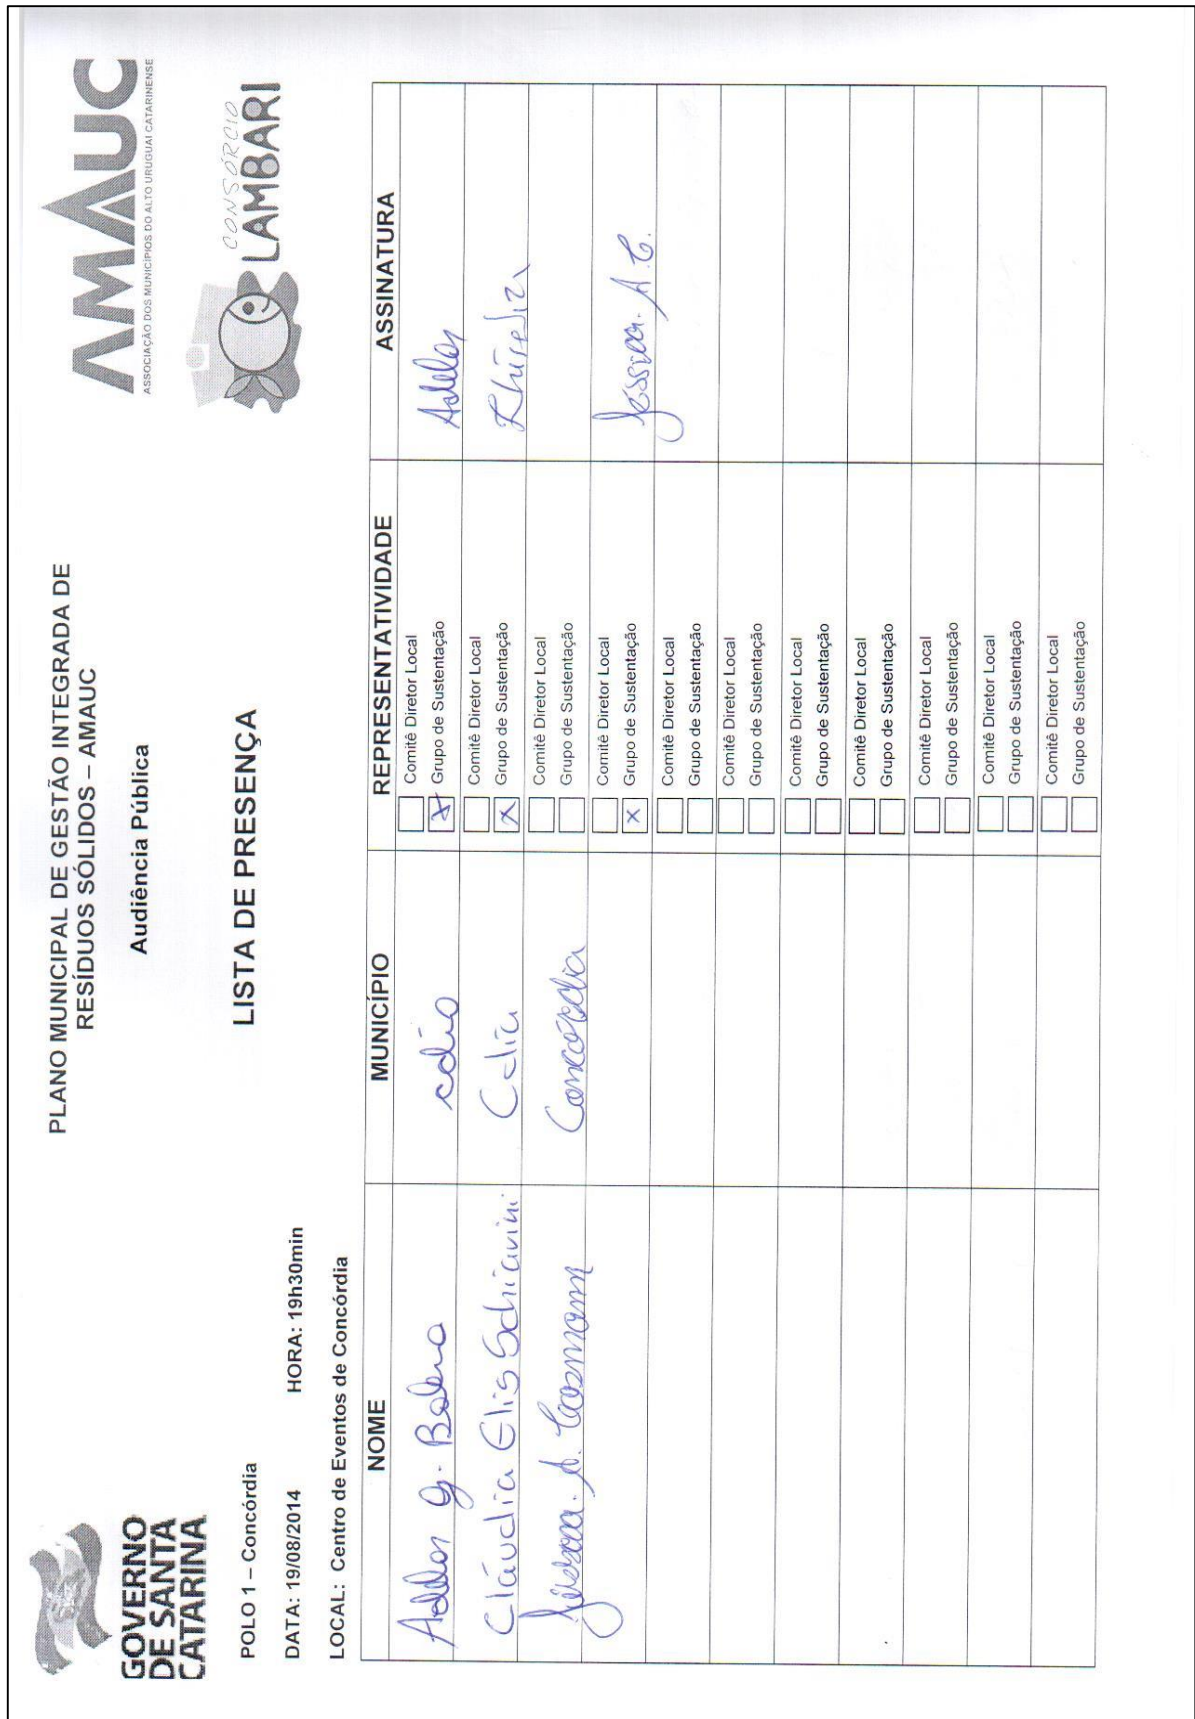 GOVERNO
DE SANTA
CATARINA
PLANO MUNICIPAL DE GESTÃO INTEGRADA DE
RESÍDUOS SÓLIDOS – AMAUC
Audiência Pública
LISTA DE PRESENÇA
AMAUC
ASSOCIAÇÃO DOS MUNICÍPIOS DO ALTO URUGUAI CATARINENSE
CONSÓRCIO
LAMBARI
POLO 1 – Concórdia
DATA: 19/08/2014 HORA: 19h30min
LOCAL: Centro de Eventos de Concórdia
NOME MUNICÍPIO REPRESENTATIVIDADE ASSINATURA
Comitê Diretor Local
G. cdia x Grupo de Sustentação
Comitê Diretor Local
Cláudia Elis Schiavini Cdia x Grupo de Sustentação
Comitê Diretor Local
Jéssica. A. Concórdia Grupo de Sustentação
Comitê Diretor Local
x Grupo de Sustentação Jéssica. A. C.
Comitê Diretor Local
Grupo de Sustentação
Comitê Diretor Local
Grupo de Sustentação
Comitê Diretor Local
Grupo de Sustentação
Comitê Diretor Local
Grupo de Sustentação
Comitê Diretor Local
Grupo de Sustentação
Comitê Diretor Local
Grupo de Sustentação
Comitê Diretor Local
Grupo de Sustentação